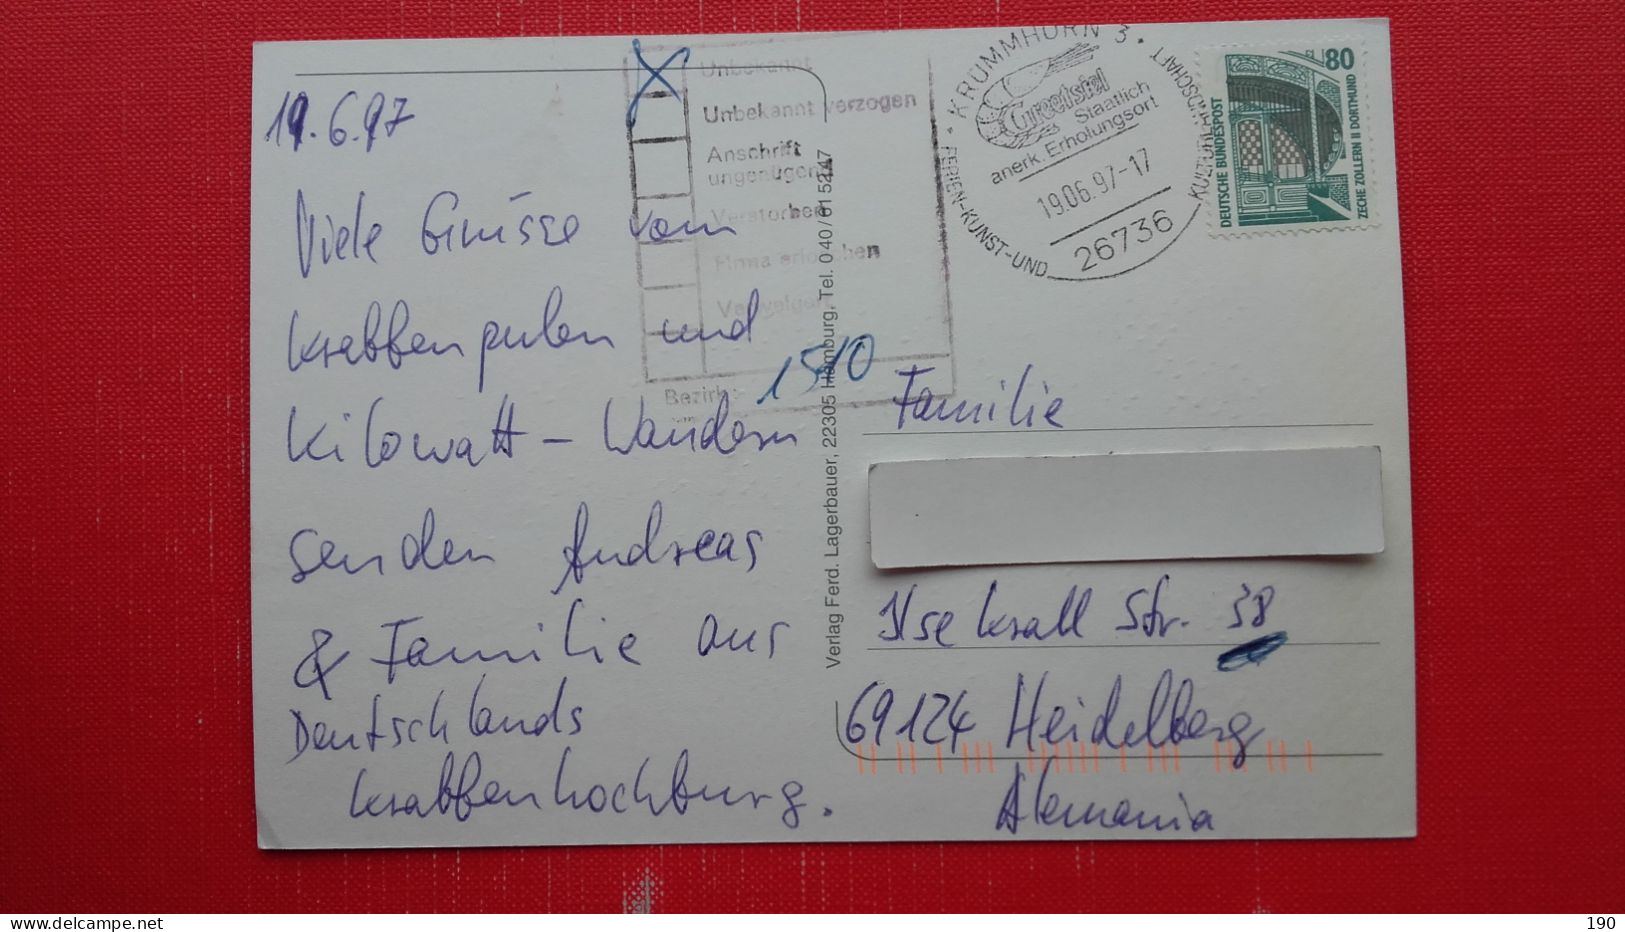 19.6.97
Viele Grüsse vom
Krabbenpulen und
Kilowatt-Wandern
senden Andreas
& Familie aus
Deutschlands
Krabbenhochburg.
Unbekannt
Unbekannt verzogen
Anschrift
ungenügend
Verstorben
Firma erloschen
Verweigert
Bezirk:
1510
Verlag Ferd. Lagerbauer, 22305 Hamburg, Tel. 040/6152 47
KRUMMHÖRN 3
Greetsiel
Staatlich
anerk. Erholungsort
19.06.97-17
26736
FERIEN-KUNST-UND
KULTURLANDSCHAFT
80
DEUTSCHE BUNDESPOST
ZECHE ZOLLERN II DORTMUND
Familie
Ilse Krall Str. 38
69124 Heidelberg
Alemania
190
delcampe.net